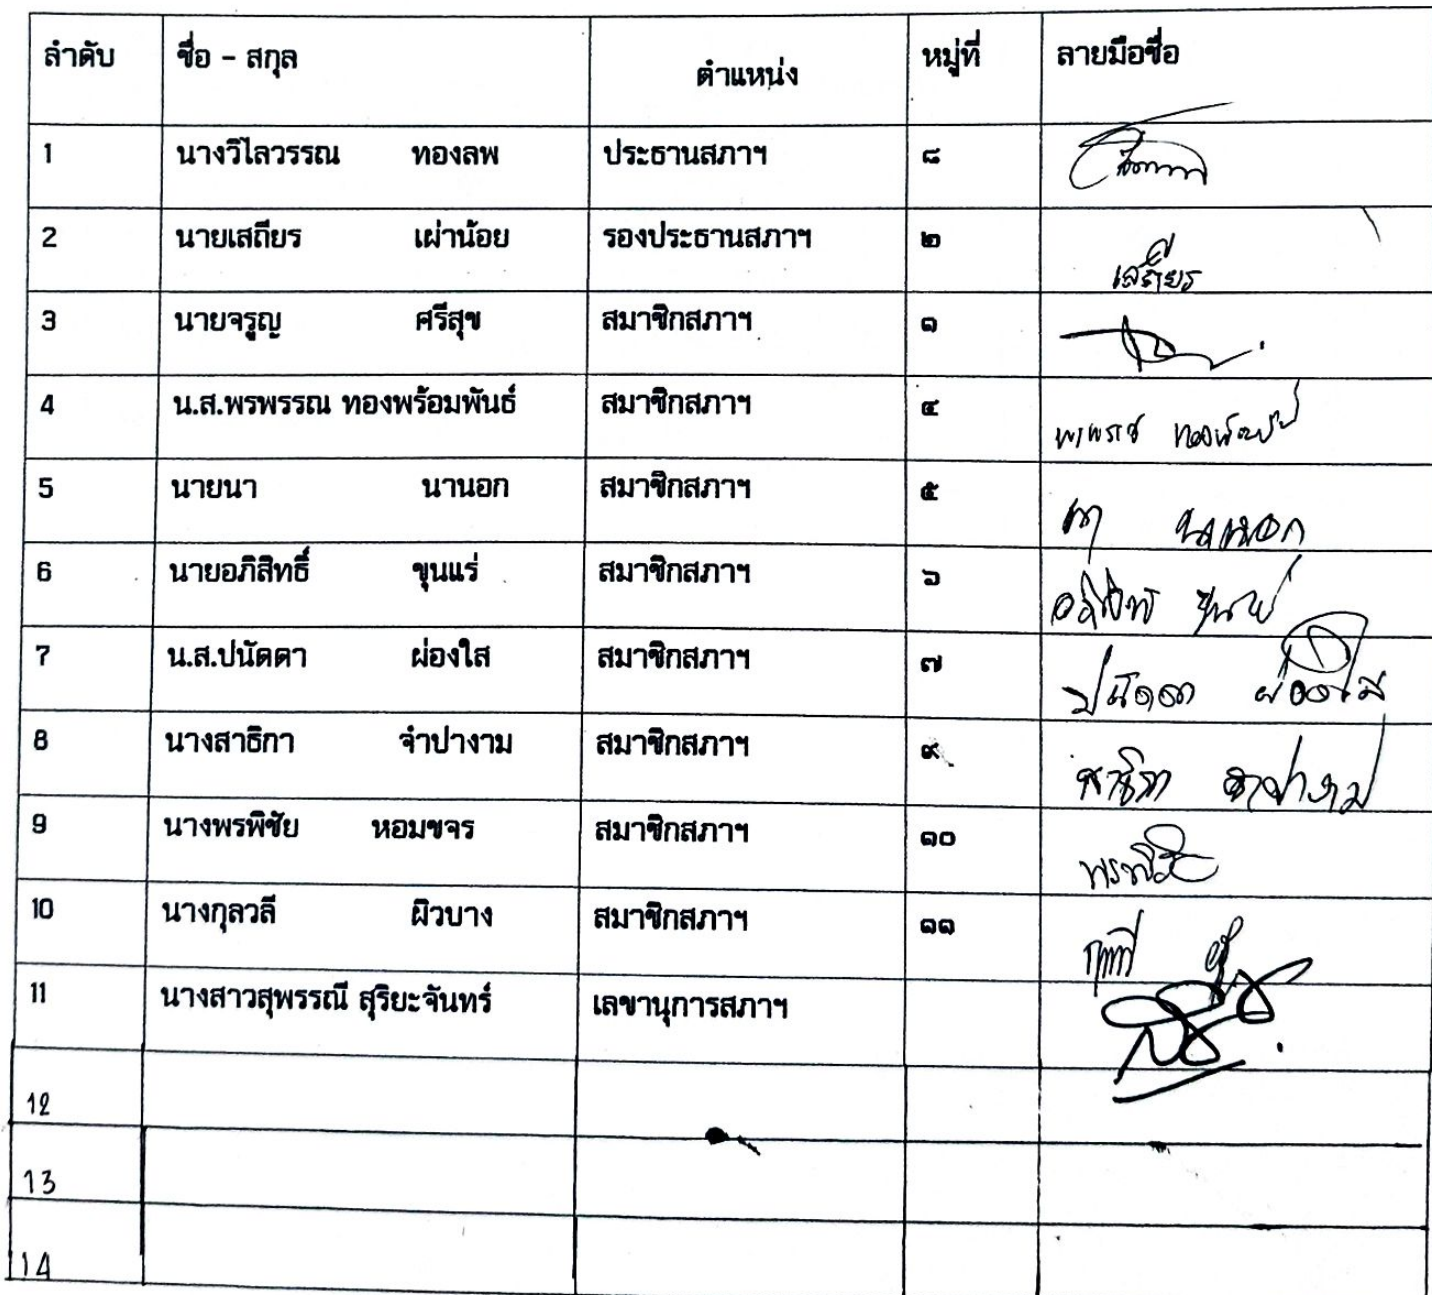 ลำดับ ชื่อ - สกุล ตำแหน่ง หมู่ที่ ลายมือชื่อ
1 นางวิไลวรรณ ทองลพ ประธานสภาฯ ๘
2 นายเสถียร เผ่าน้อย รองประธานสภาฯ ๒ เสถียร
3 นายจรูญ ศรีสุข สมาชิกสภาฯ ๑
4 น.ส.พรพรรณ ทองพร้อมพันธ์ สมาชิกสภาฯ ๔
5 นายนา นานอก สมาชิกสภาฯ ๕ นา นานอก
6 นายอภิสิทธิ์ ขุนแร่ สมาชิกสภาฯ ๖
7 น.ส.ปนัดดา ผ่องใส สมาชิกสภาฯ ๗ ปนัดดา ผ่องใส
8 นางสาธิกา จำปางาม สมาชิกสภาฯ ๙ สาธิกา จำปางาม
9 นางพรพิชัย หอมขจร สมาชิกสภาฯ ๑๐
10 นางกุลวลี ผิวบาง สมาชิกสภาฯ ๑๑
11 นางสาวสุพรรณี สุริยะจันทร์ เลขานุการสภาฯ
12
13
14